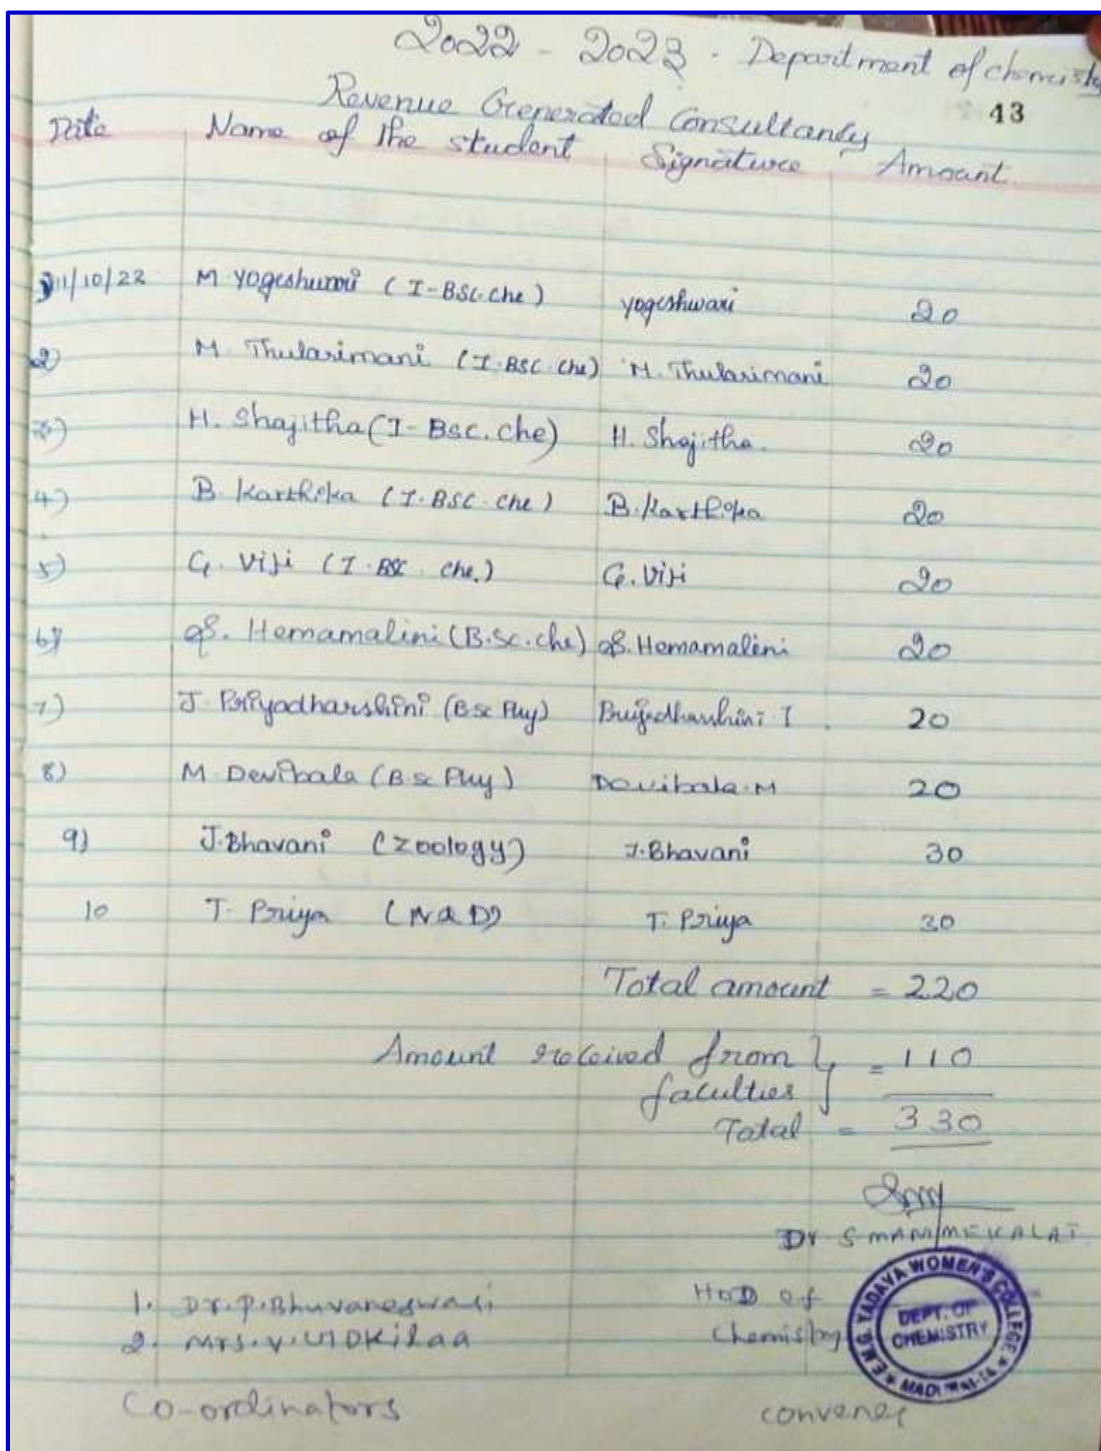 2022 - 2023 - Department of chemistry
43
Revenue Generated Consultancy
Date Name of the student Signature Amount
1) 11/10/22 M Yogeshwari (I-BSc.che) yogeshwari 20
2) M. Thulasimani (I.BSC che) M. Thulasimani 20
3) H. Shajitha (I-Bsc.che) H. Shajitha. 20
4) B. Karthika (I.BSC.che) B. Karthika 20
5) G. Viji (I.BSC.che.) G. Viji 20
6) S. Hemamalini (B.sc.che) S. Hemamalini 20
7) J. Priyadharshini (Bsc Phy) Priyadharshini J 20
8) M Devibala (B.sc Phy) Devibala.M 20
9) J.Bhavani (Zoology) J.Bhavani 30
10 T. Priya (N&D) T. Priya 30
Total amount = 220
Amount received from faculties = 110
Total = 330
Dr S MANIMEKALAI
1. Dr.P.Bhuvaneswari HOD of
2. Mrs.V. Chemistry
E.M.G. YADAVA WOMEN'S COLLEGE
DEPT. OF
CHEMISTRY
Co-ordinators convener